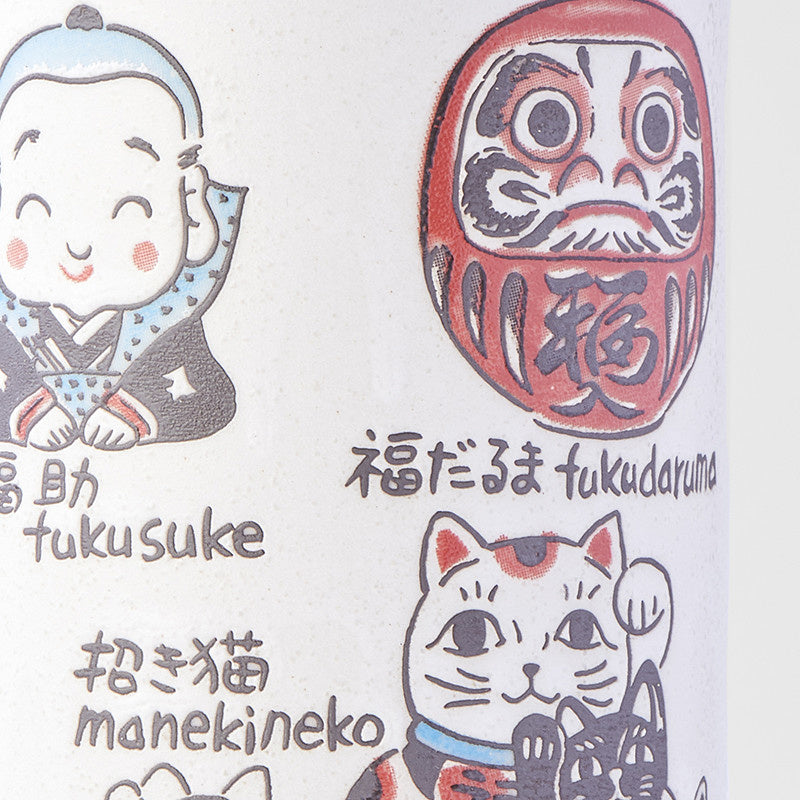 福
福だるま fukudaruma
福助
fukusuke
招き猫
manekineko